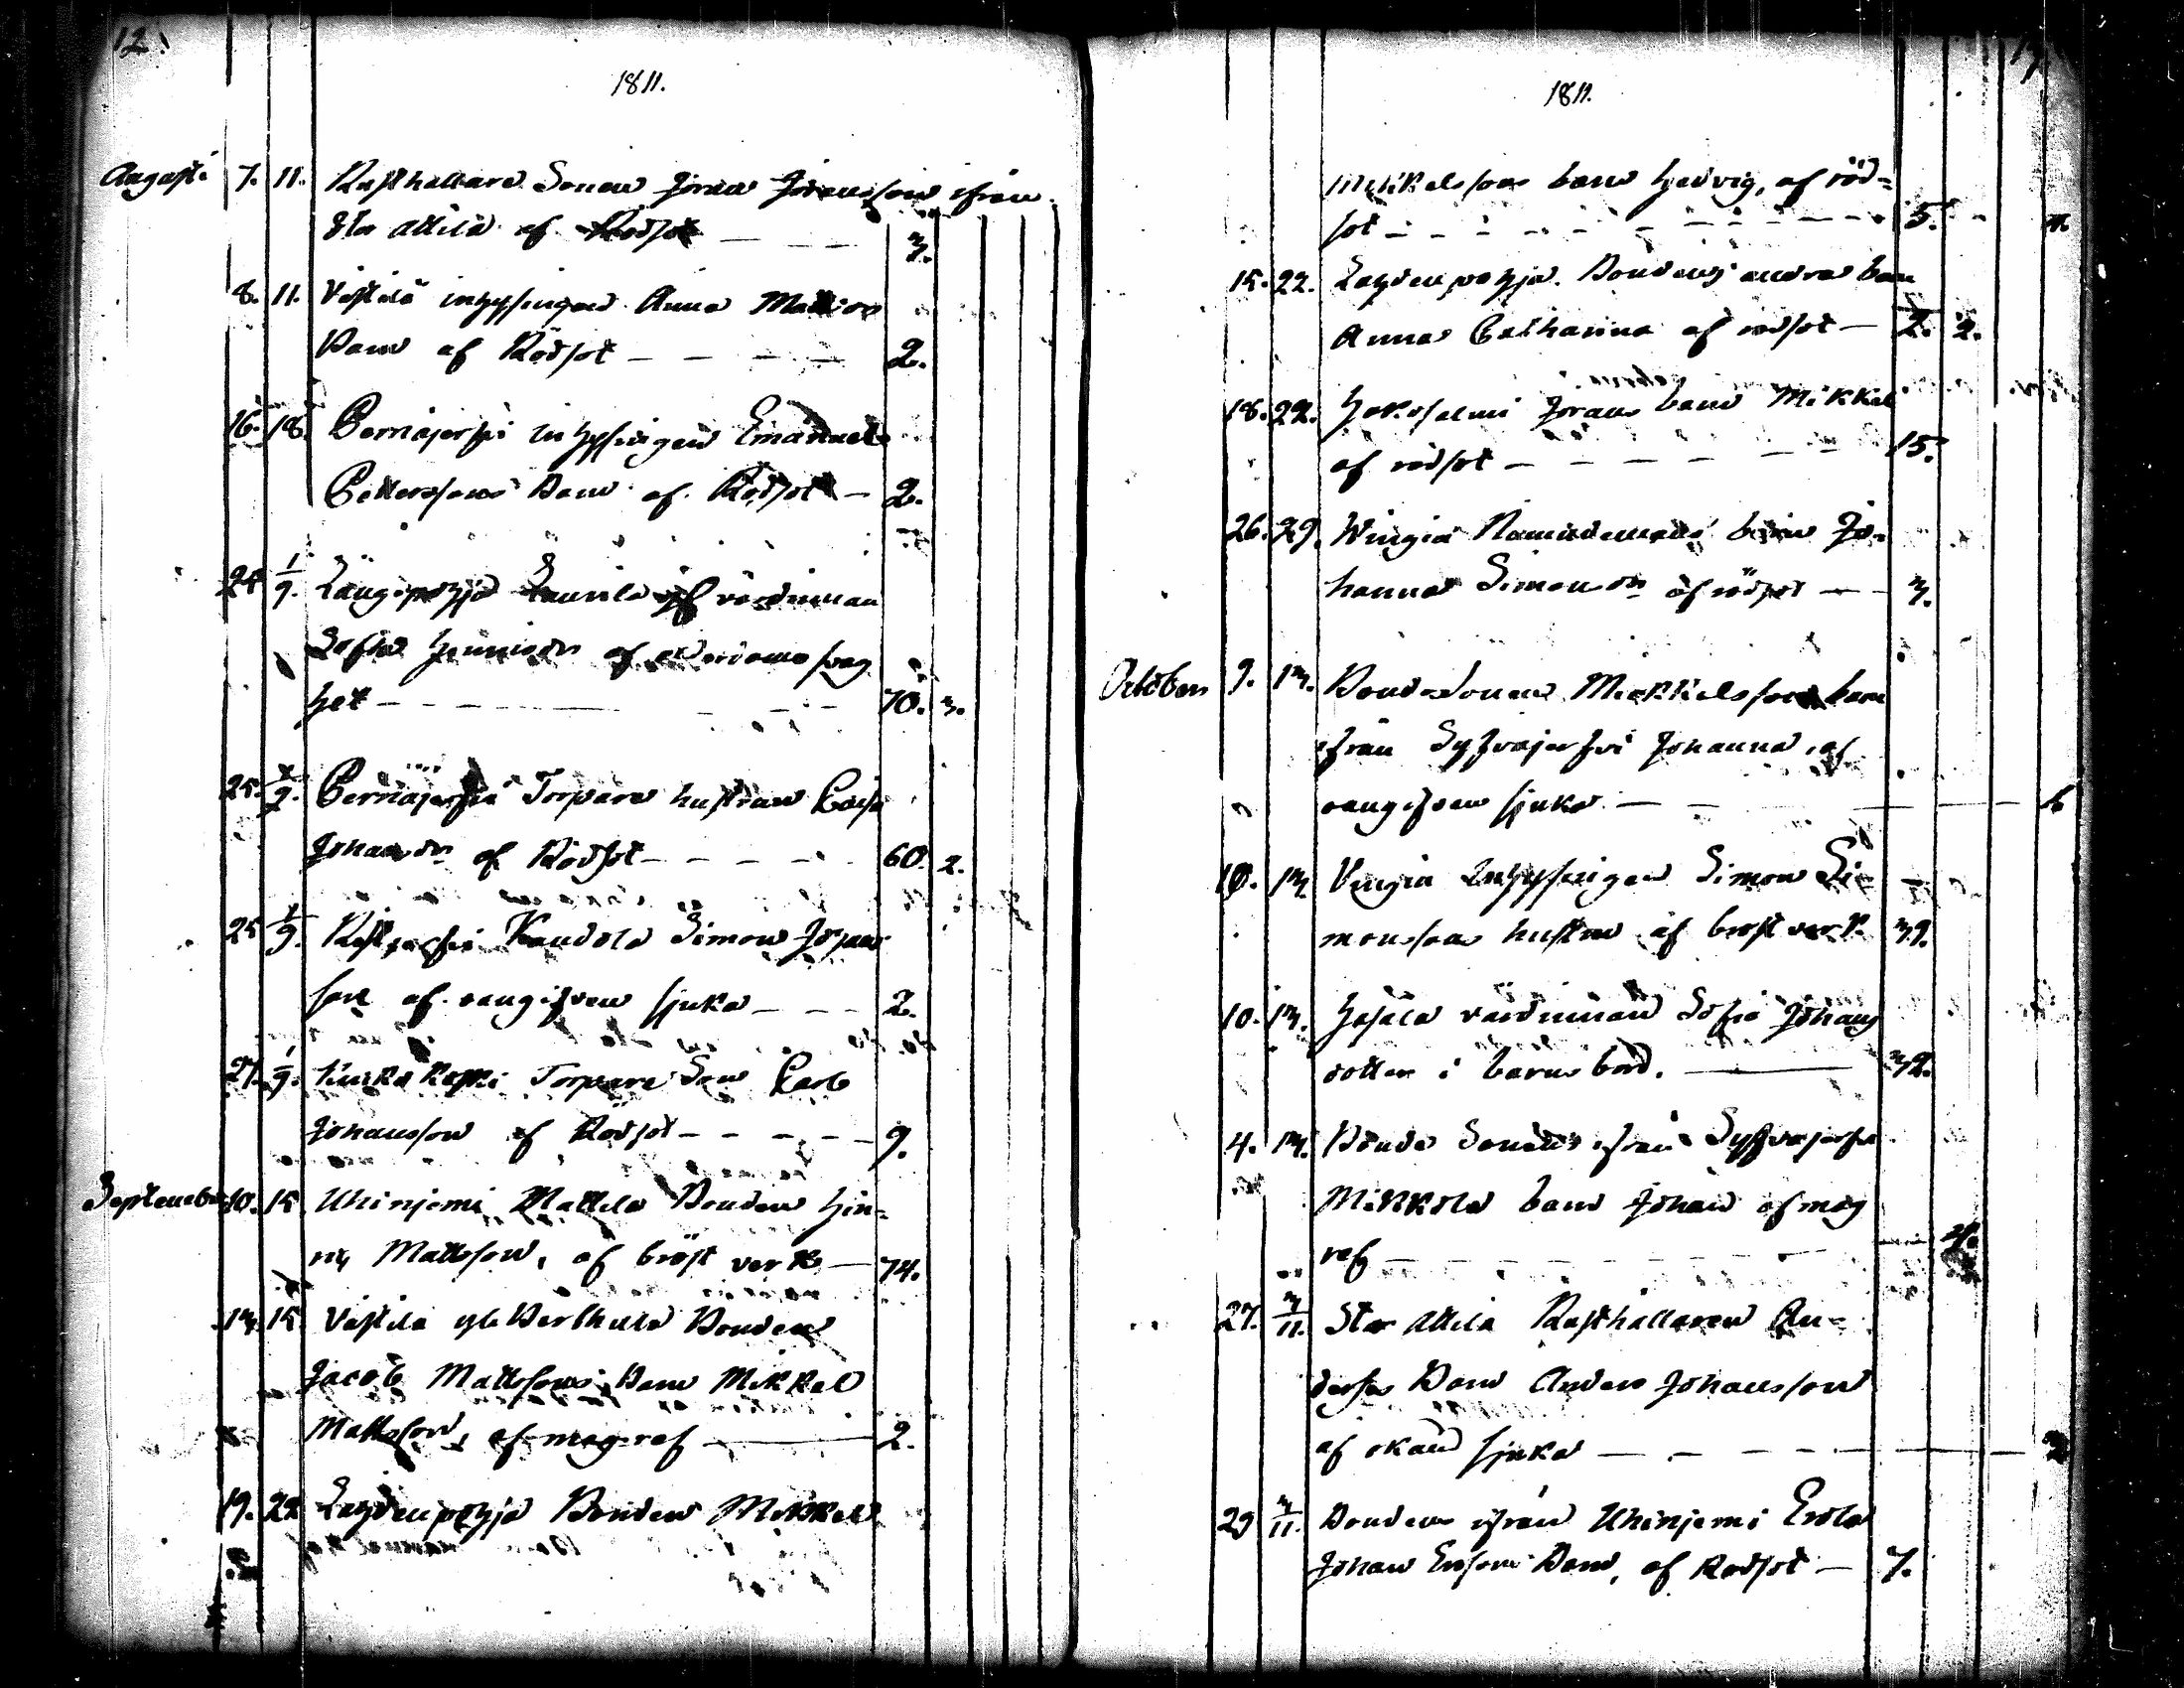 12.
1811.
Augusti 7. 11. Rusthållare Sonen Jöran Jöransson ifrån
Stor Attila af Rödsot — — — 3.
8. 11. Västilä inhysingen Anna Matts dr
Barn af Rödsot — — — — 2.
16. 18. Perniäjerfvi inhysingen Emanuel
Pettersons Barn af Rödsot — 2.
24. 1/9. Längipohja Laurila värdinnan
Sofia Henricsdr af ålderdoms svag
het — — — 70. 3.
25. 1/9. Perniäjerfvi Torpare hustrun Caisa
Johansdr af Rödsot — — — — 60. 2.
25. 1/9. Kandola Simon Johans
son af oangifven sjukd — — — 2.
27. 1/9. Torpare Son Carl
Johansson af Rödsot — — — — 9.
September 10. 15. Uhinjemi Mattila Bonden Hin-
ric Mattsson, af bröst verk — 74.
13. 15. Västilä Berthula Bonden
Jacob Mattsons Barn Mikkel
Mattsson, af mag ref — 2.
19. 22. Lahdenpohja Bonden Mikkel
1811.
Mikkelssons barn Hedvig, af röd-
sot — — — — — — 5.
15. 22. Lahdenpohja Bondens andra barn
Anna Catharina af rödsot — 2. 2.
18. 22. Jörans barn Mikkel
af rödsot — — — — — 15.
26. 29. Wingiä barn Jo-
hanna Simons dr af rödsot — — 3.
October 9. 13. Bondesonens Mickelssons barn
ifrån Syfväjerfvi Johanna, af
oangifven sjukd — — — 6
10. 13. Vingiä Inhysingen Simon Si-
monssons hustru af bröst verk. 39.
10. 13. värdinnan Sofia Johans
dotter i barns börd. — 32.
4. 13. Bonde Sonens ifrån Syfväjerfvi
Mikkola barn Johan af mag
ref — — — — — — 4.
27. 3/11. Stor Attila Rusthållaren An-
ders Barn Anders Johansson
af okänd sjukd — — — 2
29 3/11. Bondens ifrån Uhinjemi Erola
Johan Ersons Barn, af Rödsot — 7.